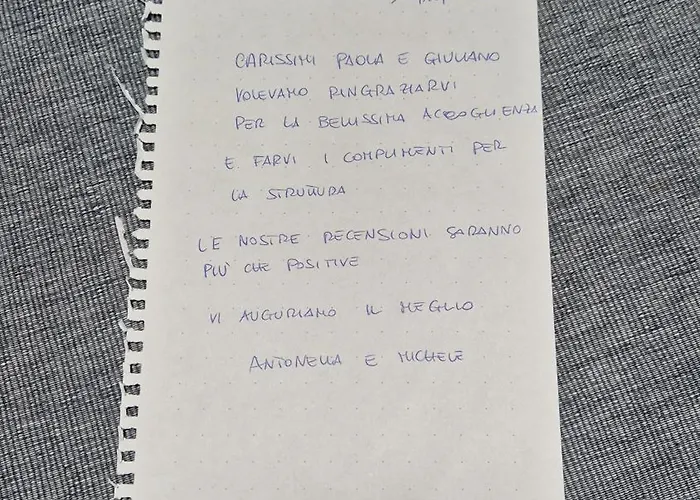 CARISSIMI PAOLA E GIULIANO
VOLEVAMO RINGRAZIARVI
PER LA BELLISSIMA ACCOGLIENZA
E FARVI I COMPLIMENTI PER
LA STRUTTURA
LE NOSTRE RECENSIONI SARANNO
PIÙ CHE POSITIVE
VI AUGURIAMO IL MEGLIO
ANTONELLA E MICHELE